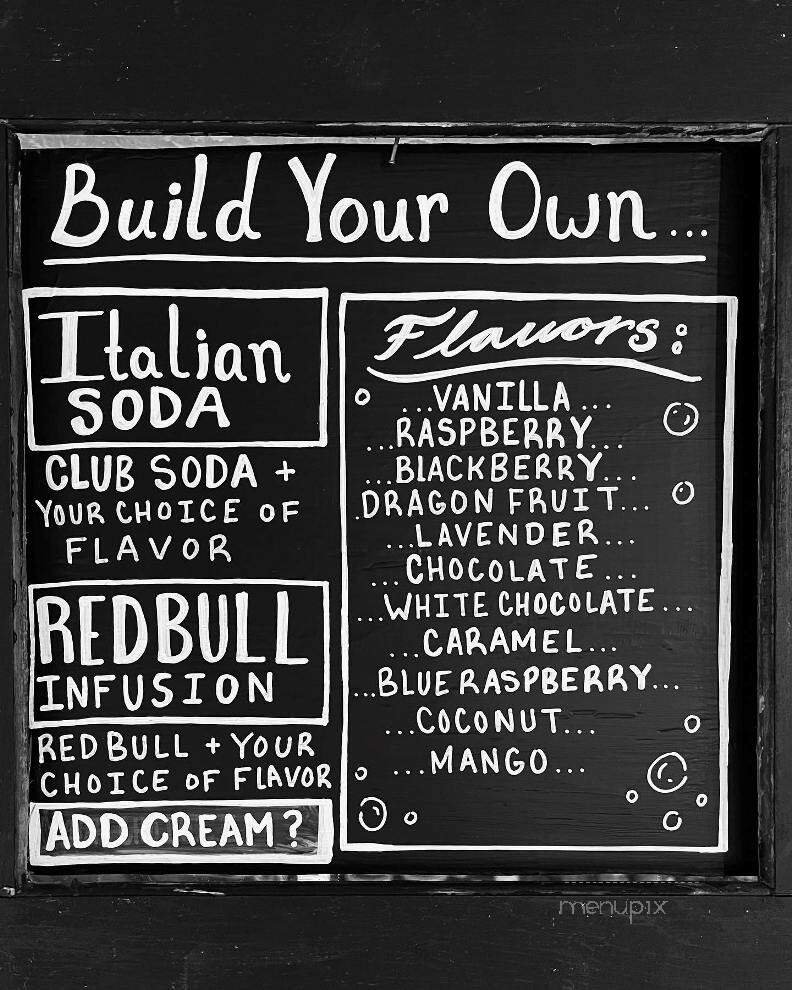 Build Your Own...
Italian
SODA
CLUB SODA +
YOUR CHOICE OF
FLAVOR
REDBULL
INFUSION
RED BULL + YOUR
CHOICE OF FLAVOR
ADD CREAM?
Flavors:
...VANILLA...
...RASPBERRY...
...BLACKBERRY...
.DRAGON FRUIT...
...LAVENDER...
...CHOCOLATE...
...WHITE CHOCOLATE...
...CARAMEL...
...BLUE RASPBERRY...
...COCONUT...
...MANGO...
menupix